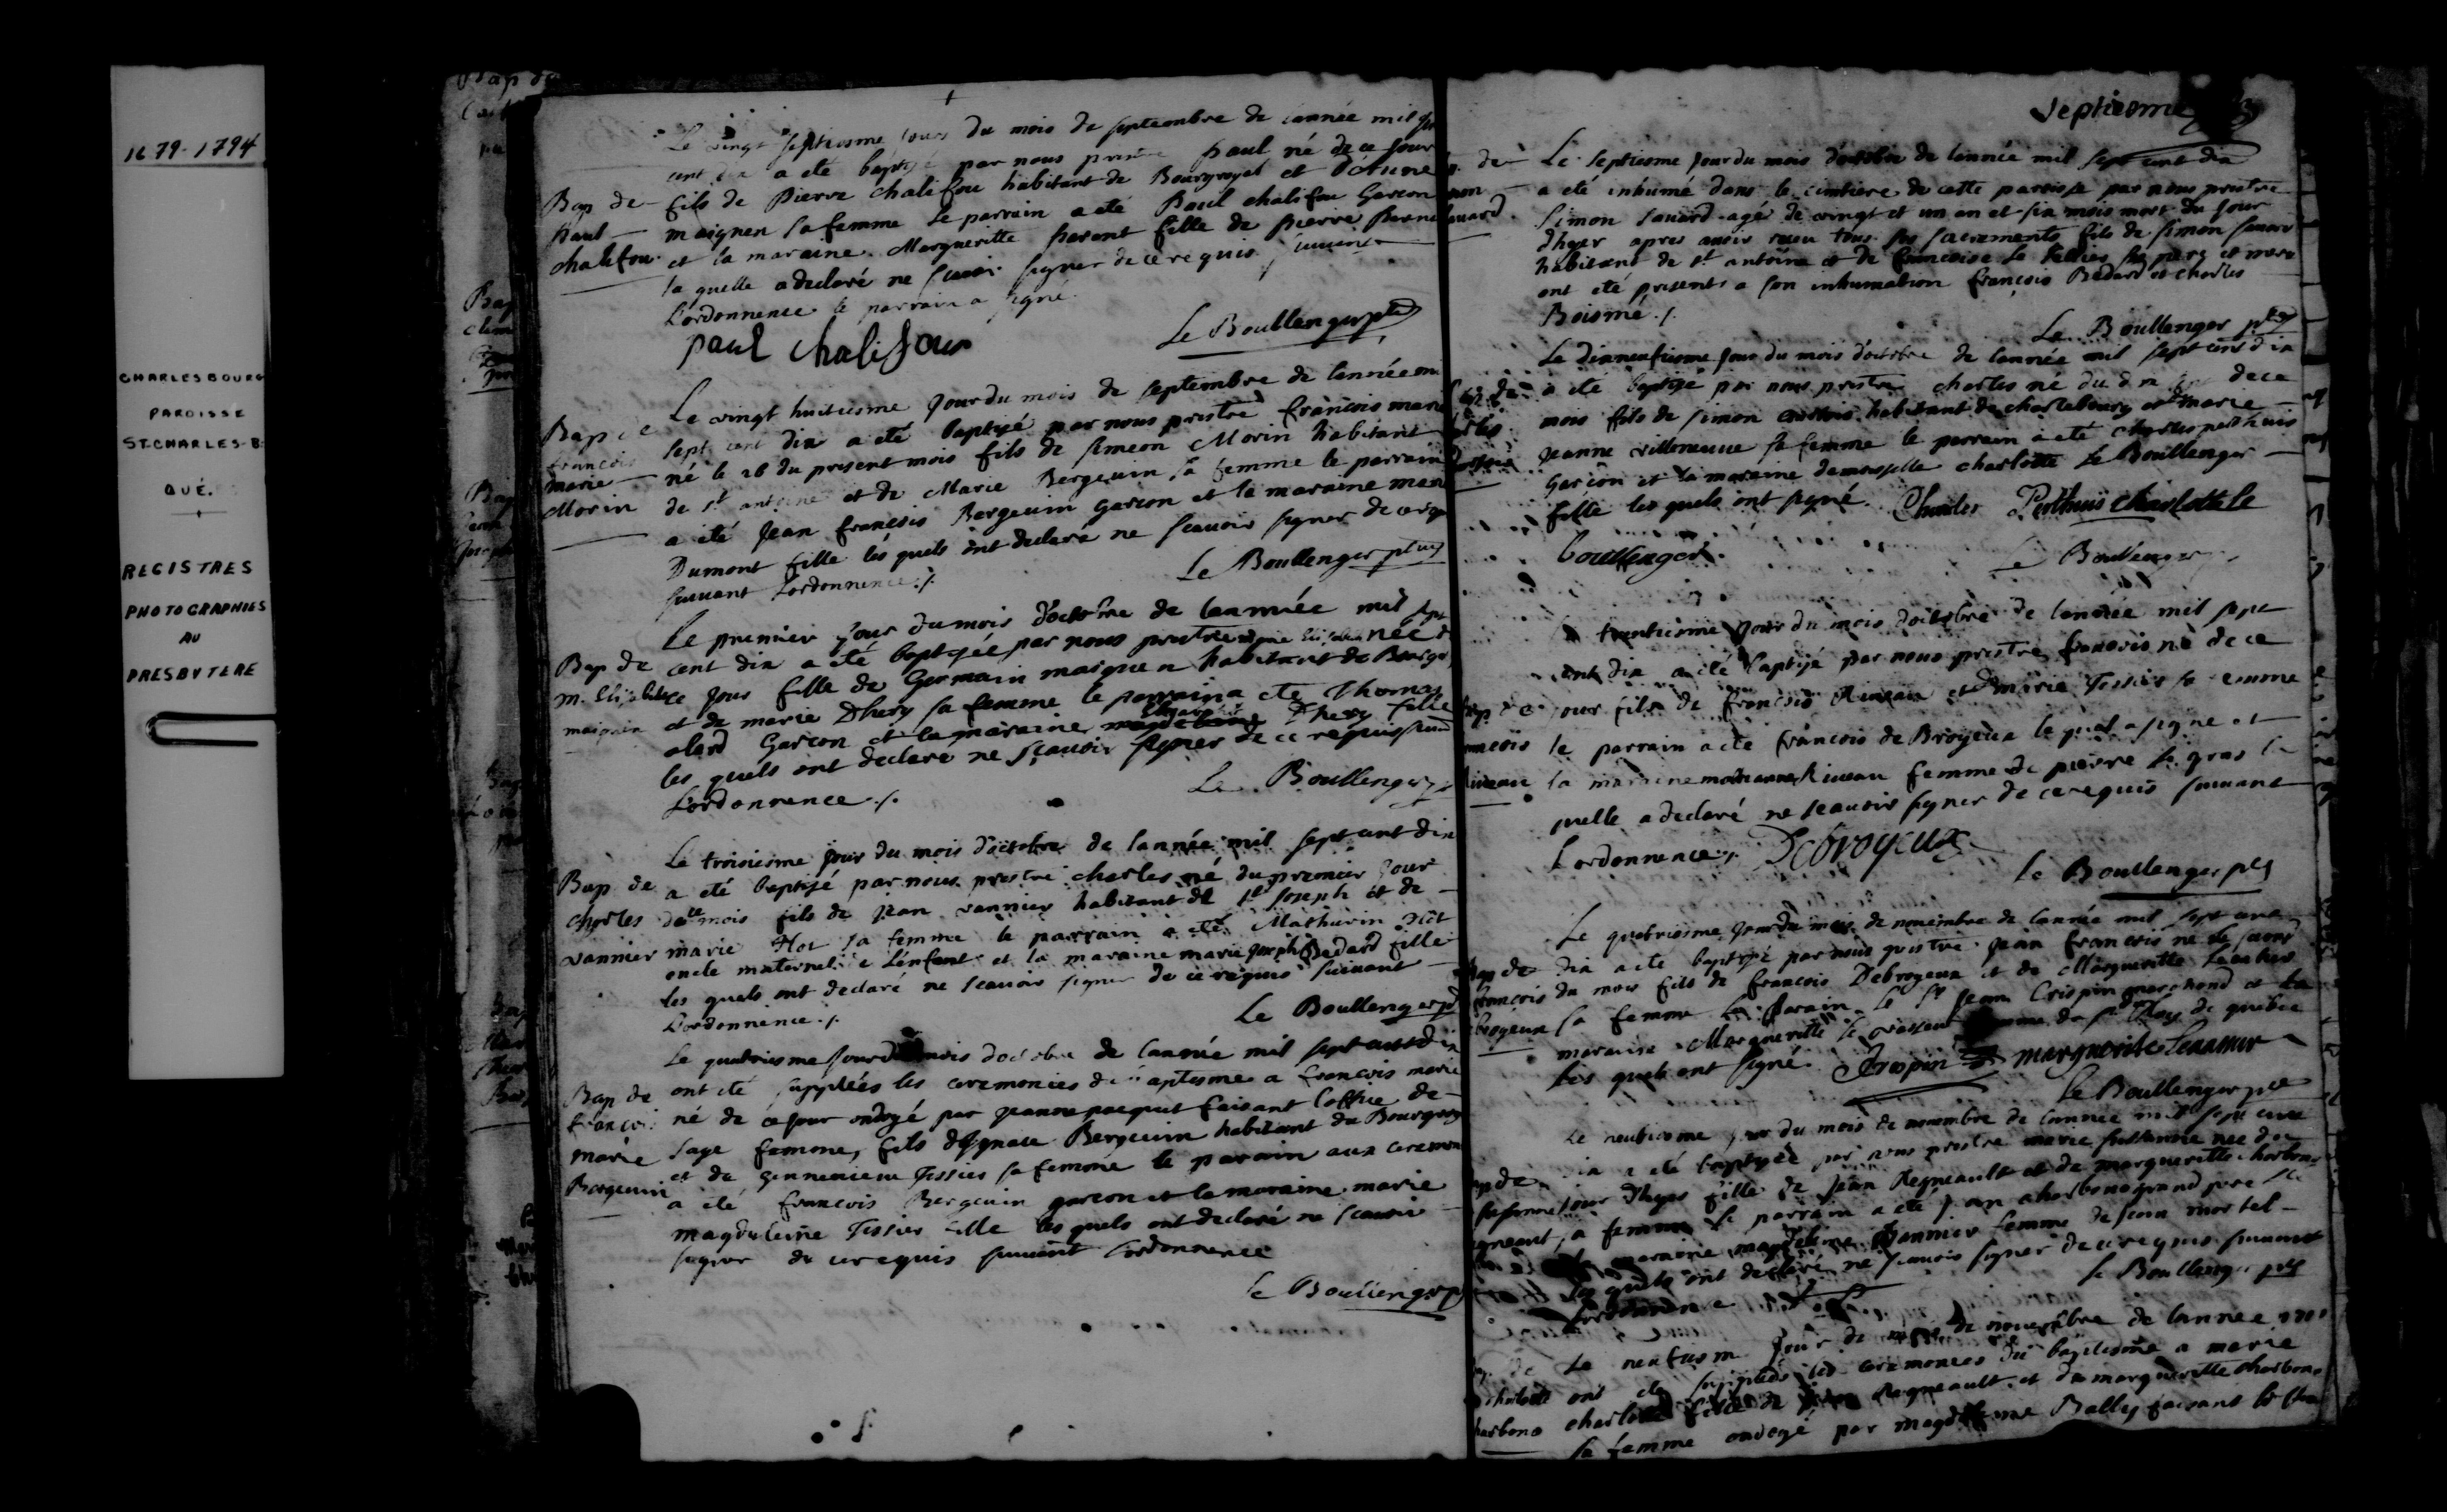 1679-1794
CHARLESBOURG
PAROISSE
ST-CHARLES-B.
QUÉ.
REGISTRES
PHOTOGRAPHIES
AU
PRESBYTERE
Le vingt septiesme jour du mois de septembre de lannée mil
cent dix a eté baptisé par nous prestre paul né de ce jour
Bap de fils de Pierre chalifou habitant de Bourgroyal et d'Anne
paul maignen sa femme le parrain a eté Paul chalifou Garcon
chalifou et la maraine Margueritte parent fille de pierre parent
la quelle a declaré ne scavoir signer de ce requis suivant
L'ordonnence le parrain a signé.
paul chalifour Le Boullenger ptre
Le vingt huitiesme jour du mois de septembre de lannée mil
Bap de sept cent dix a eté baptisé par nous prestre francois marie
francois né le 26 du present mois fils de simeon Morin habitant
marie de st antoine et de Marie Bergevin sa femme le parrain
Morin a eté jean francois Bergevin Garcon et la maraine marie
Dumont fille les quels ont declaré ne scavoir signer de ce
suivant L'ordonnence ./. Le Boullenger ptre
Le premier jour du mois d'octobre de lannée mil sept
Bap de cent dix a eté baptisée par nous prestre née
m. Elizabet ce jour fille de Germain maignen habitant de Bourg
maignen et de marie Dhery sa femme le parrain a eté Thomas
alard Garcon et la maraine Dhery fille
les quels ont declaré ne scavoir signer de ce requis
L'ordonnence ./. Le Boullenger
Le troisiesme jour du mois d'octobre de lannée mil sept cent dix
Bap de a eté baptisé par nous prestre charles né du premier jour
charles de ce mois fils de jean vannier habitant de st joseph et de
vannier marie Hot sa femme le parrain a eté Mathurin Hot
oncle maternel de l'enfant et la maraine marie joseph Bedard fille
les quels ont declaré ne scavoir signer de ce requis suivant
L'ordonnence ./. Le Boullenger
Le quatriesme jour du mois doctobre de lannée mil sept cent dix
Bap de ont eté suppléés les ceremonies de baptesme a francois marie
francois né de ce jour ondoyé par jeanne paquet faisant loffice de
marie sage femme, fils d'Ignace Bergevin habitant du Bourgroy
Bergevin et de Gennevieve Tessier sa femme le parain aux ceremon
a eté francois Bergevin garcon et la maraine marie
magdeleine Tessier fille les quels ont declaré ne scavoir
signer de ce requis suivant Lordonnence
Le Boullenger
Septiesme
Le septiesme jour du mois d'octobre de lannée mil sept cent dix
a eté inhumé dans le cimetiere de cette paroisse par nous prestre
Simon savard agé de vingt et un an et six mois mort du jour
dhyer apres avoir receu tous ses sacrements fils de simon savard
habitant de st antoine et de francoise le tellier ses pere et mere
ont eté presents a son inhumation francois Bedard et charles
Boismé ./. Le Boullenger
Le dixneufiesme jour du mois d'octobre de lannée mil sept cent dix
a eté baptisé par nous prestre charles né du dix de ce
mois fils de simon habitant de charlebourg et de marie
jeanne villeneuve sa femme le parrain a eté charles perthuis
Garcon et la maraine demoiselle charlotte Le Boullenger
fille les quels ont signé. Charles Perthuis charlotte le
boullenger Le Boullenger
trentiesme jour du mois doctobre de lannée mil sept
cent dix a eté baptisé par nous prestre francois né de ce
jour fils de francois Riveau et de marie Tessier sa femme
le parrain a eté francois de Broyeux le quel a signé et
la maraine Riveau femme de pierre le gros la
quelle a declaré ne scavoir signer de ce requis suivant
Lordonnence ./. Debroyeux Le Boullenger
Le quatriesme jour du mois de novembre de lannée mil sept cent
dix a eté baptisé par nous prestre jean francois né le
francois du mois fils de francois Debroyeux et de Margueritte
sa femme le parain le sr jean Crispin marchand et la
maraine Margueritte le vasseur de quebec
les quels ont signé Crespin margueritte
Le Boullenger
Le neufiesme jour du mois de novembre de lannée mil sept cent
dix a eté baptisée par nous prestre marie née du
jour dhyer fille de jean Regneault et de margueritte charbon
sa femme le parrain a eté jean charbono grand pere
maraine magdeleine femme de jean mortel
les quels ont declaré ne scavoir signer de ce requis suivant
Le Boullenger
Le neufiesme jour du mois de novembre de lannee
ont eté suppléés les ceremonies du baptesme a marie
charlotte fille de Regneault et de margueritte charbon
sa femme ondoyé par magdeleine Bally faisant